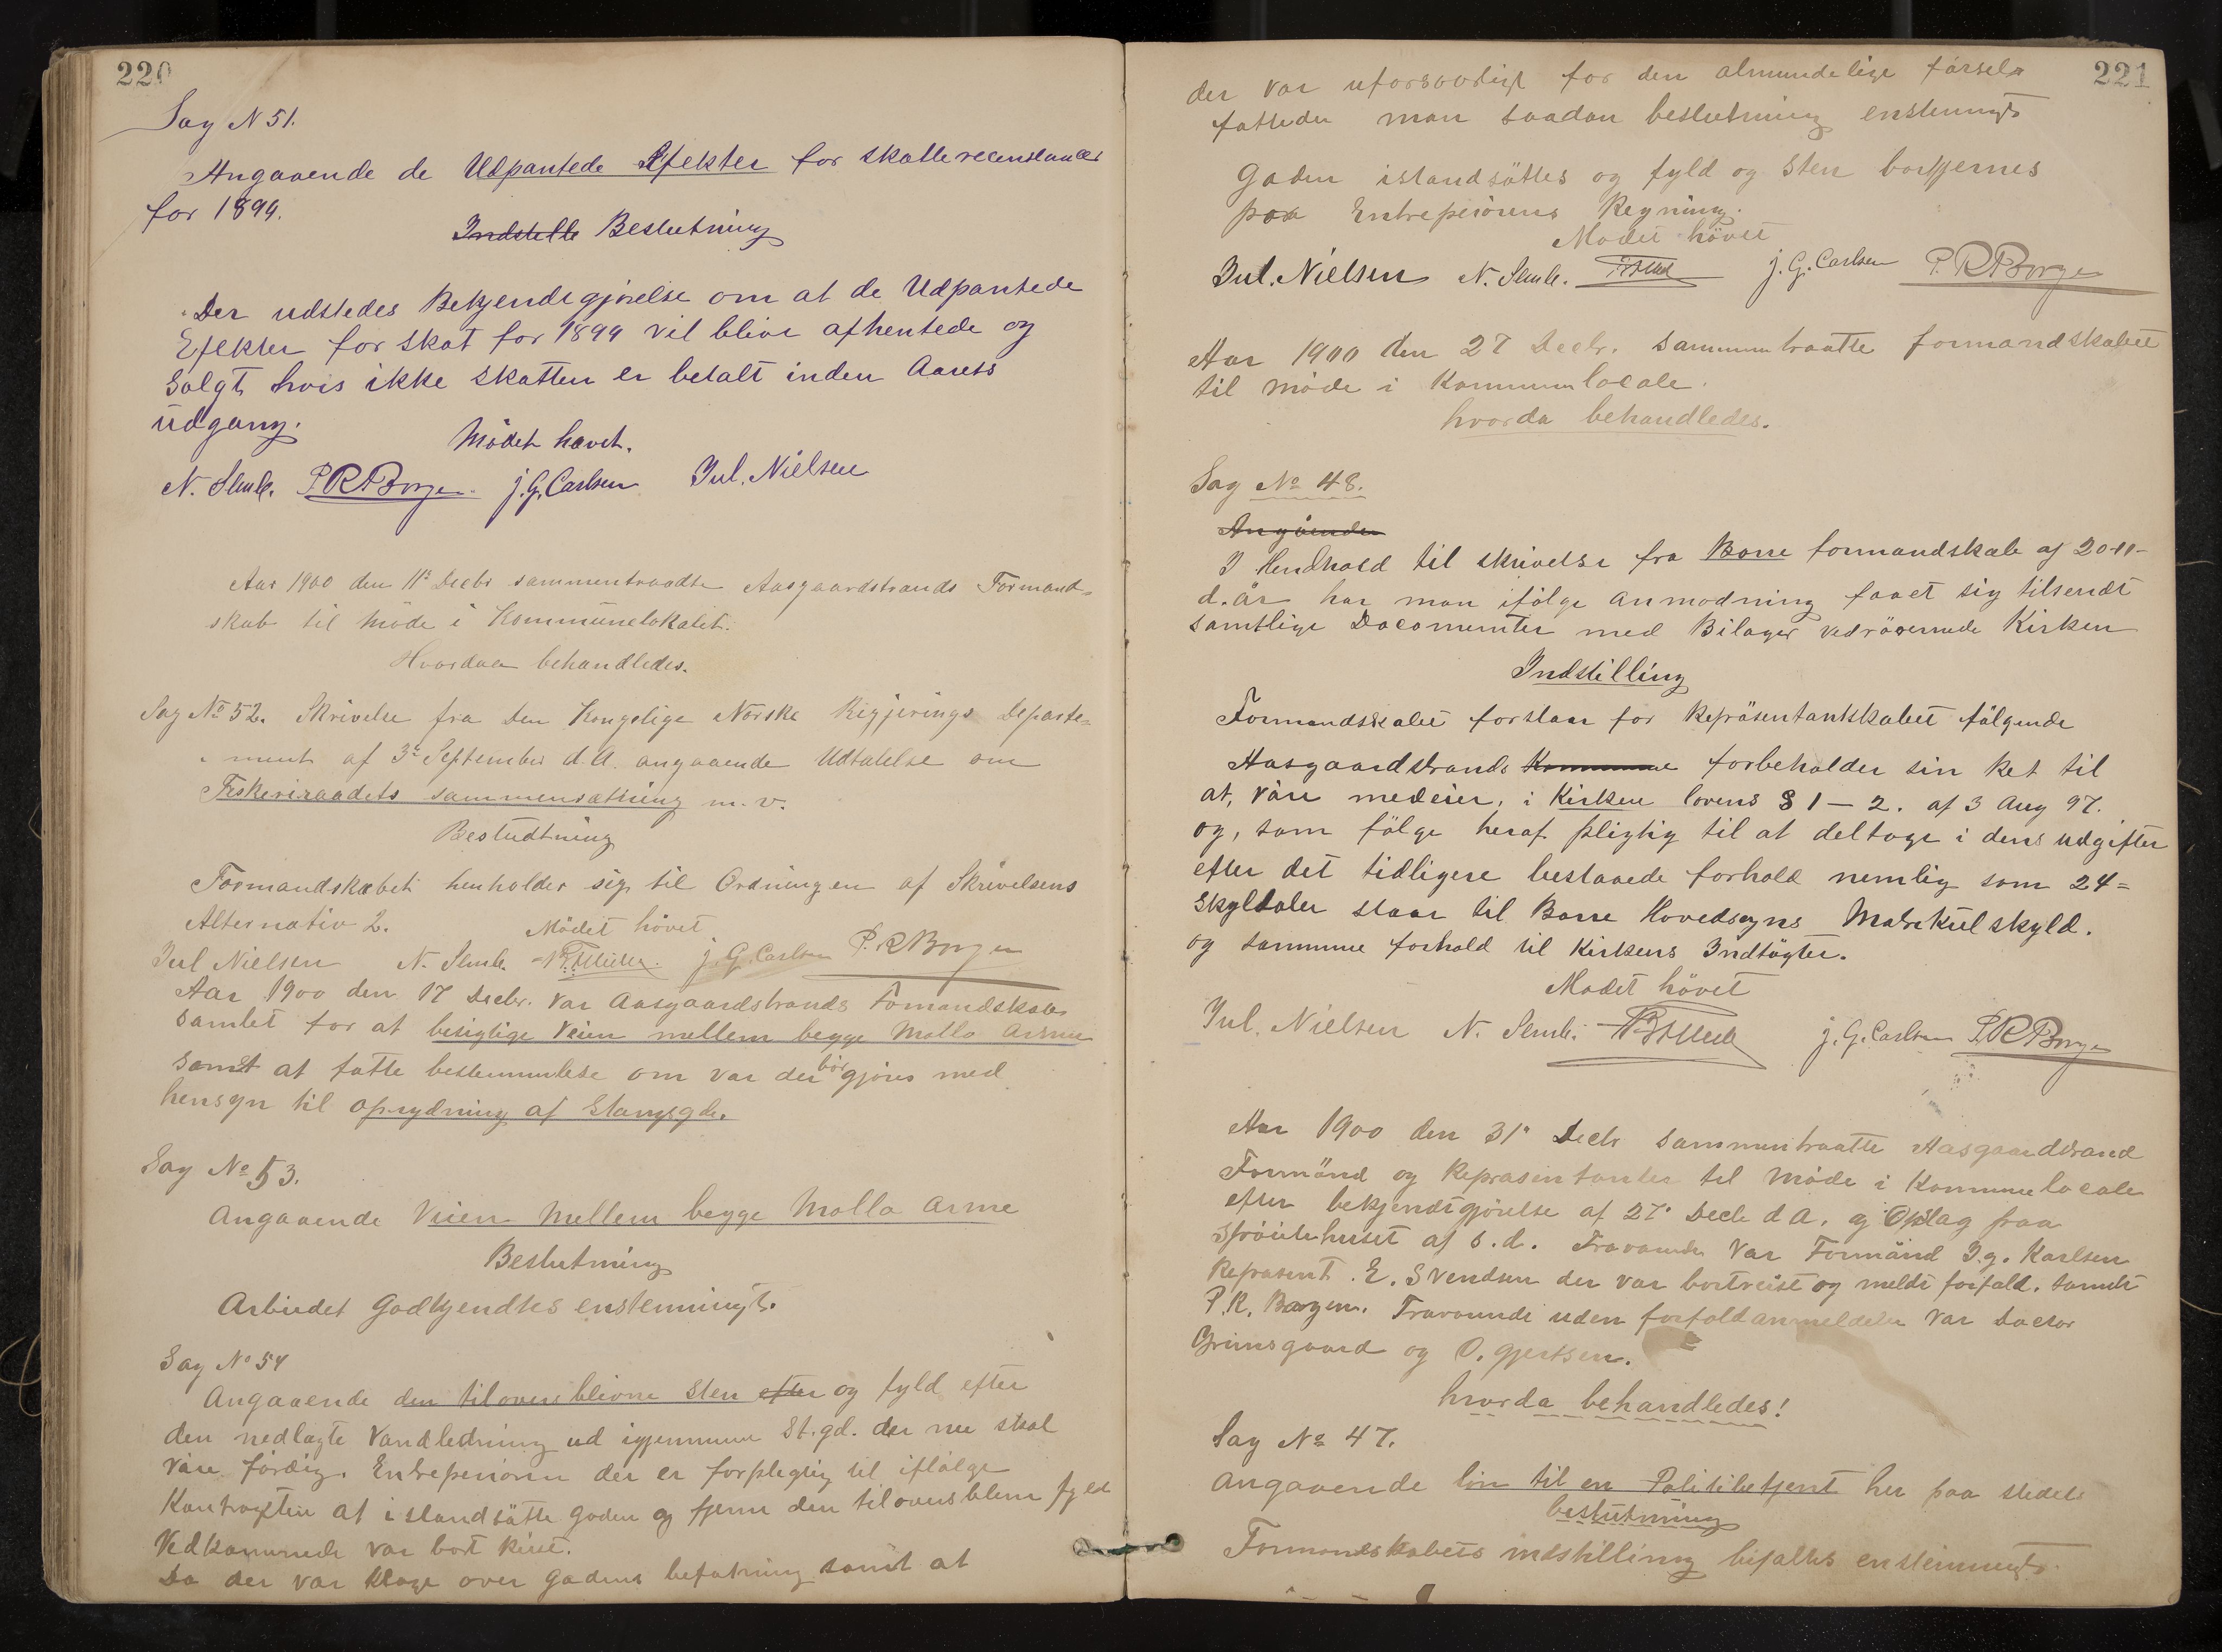 220
Sag N 51.
Angaaende de Udpantede Efekter for skatterecenstancer
for 1899.
Indstelle Beslutning
Der udstedes Bekjendtgjørelse om at de Udpantede
Efekter for skat for 1899 vil blive afhentede og
Solgt hvis ikke skatten er betalt inden Aarets
Udgang.
Mödet hævet.
N. Slmle. P.R.Borgen. J.G. Carlsen Jul. Nielsen
Aar 1900 den 11te Decbr sammentraadte Aasgaardstrands Formand=
skab til Møde i Kommunelokalet.
Hvordaa behandledes.
Sag No 52. Skrivelse fra Den Kongelige Norske Regjerings Departe=
ment af 3de September d.A. angaaende Udtalelse om
Fiskeriraadets sammensætning m.v.
Besludtning
Formandskabet henholder sig til Ordningen af Skrivelsens
Alternativ 2. Mödet hövet
Jul Nielsen N. Slmle. J.G. Carlsen P.R Borgen
Aar 1900 den 17 Decbr. var Aasgaardstrands Fomandskab
samlet for at besigtige Veien mellem begge Mollo Arme
samt at fatte bestemmelse om var der bör gjöres med
hensyn til oprydning af Stangsgd.
Sag No 53.
Angaaende Veien Mellem begge Mollo Arme
Beslutning
Arbiedet Godkjendtes enstemmigt.
Sag No 54
Angaaende den tiloversblivne Sten efter og fyld efter
den nedlagte Vandledning ud igjennem St.gd. der nu skal
väre färdig. Entrepenören der er forpligtig til iflölge
Kontragten at istandsätte gaden og fjerne den tiloversblevn fyld
Vedkommende var bort reist.
Da der var klage over gadens befatning samt at
221
der var uforsvarligt for den almindelige färsel
fattede man saadan beslutning enstemmigt
Gaden istandsättes og fyld og Sten bortfjernes
paa Entrepenörens Regning.
Modet hövet
Jul. Nielsen N. Slmle. J.G. Carlsen P.R.Borgen
Aar 1900 den 27 Decbr. sammentraatte formandskabet
til møde i Kommunelocale.
hvorda behandledes.
Sag No 48.
Angående
I Hendhold til skrivelse fra Borre formandskab af 20-11-
d. år har man ifölge anmodning faaet sig tilsendt
samtlige Documenter med Bilager vedrörende Kirken
Indstilling
Formandskabet forslaar for Repräsentantskabet fölgende
Aasgaardstrands Kommune forbeholder sin Ret til
at, väre medeier, i Kirken lovens § 1 – 2. af 3 Aug 97.
og, som fölge heraf pligtig til at deltage i dens udgifter
efter det tidligere bestaaede forhold nemlig som 24=
Skyldaler staar til Borre Hovedsogns Matrikulskyld.
og samme forhold til Kirkens Indtägter.
Mödet hövet
Jul. Nielsen N. Slmle. J.G. Carlsen P.R.Borgen
Aar 1900 den 31' Decbr sammentraatte Aasgaardstrand
Formänd og Repräsentanter til Möde i Kommunelocale
efter bekjendtgjörelse af 27' Decb d A. og Opslag paa
Spröitehuset af s.d. Fravärende Var Formänd J.g. Karlsen
Repräsent. E. Svendsen der var bortreist og meldt forfald. samdt
P.R. Borgen. Fravärende uden forfaldanmeldelse var Doctor
Grimsgaard og O. Gjertsen.
hvorda behandledes!
Sag No 47.
Angaaende lön til en Politibetjent her paa stedet
beslutning
Formandskabets indstilling bifaltes enstemmigt.